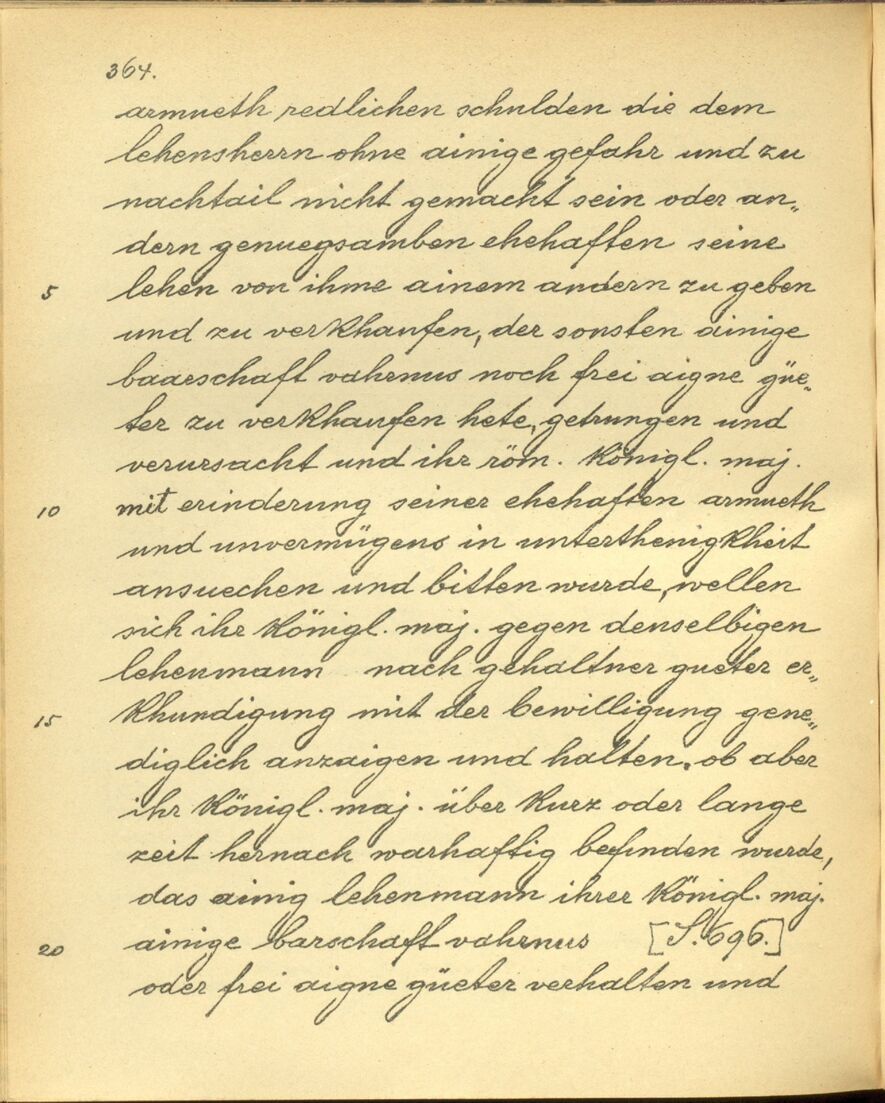 364.
armueth redlichen schulden die dem
lehensherrn ohne ainige gefahr und zu
nachtail nicht gemacht sein oder an„
dern genuegsamben ehehaften seine
5 lehen von ihme ainem andern zu geben
und zu verkhaufen, der sonsten ainige
baarschaft vahrnus noch frei aigne güe„
ter zu verkhaufen hete, getrungen und
verursacht und ihr röm. königl. maj.
10 mit erinderung seiner ehehaften armueth
und unvermügens in unterthenigkheit
ansuechen und bitten wurde, wellen
sich ihr königl. maj. gegen denselbigen
lehenmann nach gehaltner gueter er„
15 khundigung mit der bewilligung gene„
diglich anzaigen und halten. ob aber
ihr königl. maj. über kurz oder lange
zeit hernach warhaftig befinden wurde,
das ainig lehenmann ihrer königl. maj.
20 ainige barschaft vahrnus [S. 696.]
oder frei aigne güeter verhalten und